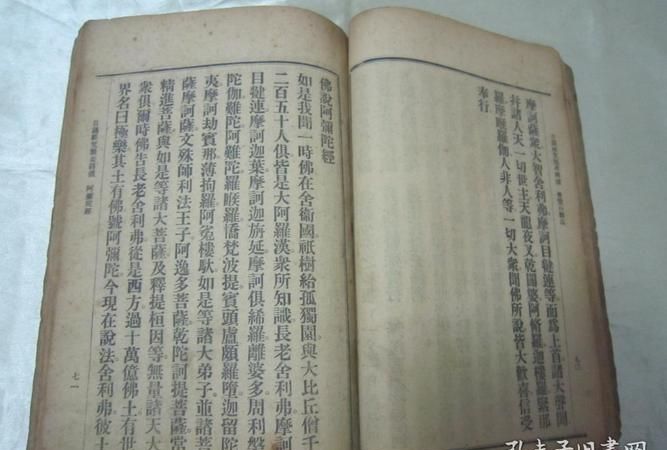 摩訶薩衆大智舍利弗摩訶目犍連等而爲上首諸大聲聞
持諸人天一切世主天龍夜叉乾闥婆阿脩羅迦樓羅緊那
羅摩睺羅伽人非人等一切大衆聞佛所說皆大歡喜信受
奉行
佛說阿彌陀經
如是我聞一時佛在舍衛國祇樹給孤獨園與大比丘僧千
二百五十人俱皆是大阿羅漢衆所知識長老舍利弗摩訶
目犍連摩訶迦葉摩訶迦旃延摩訶俱絺羅離婆多周利槃
陀伽難陀阿難陀羅睺羅憍梵波提賓頭盧頗羅墮迦留陀
夷摩訶劫賓那薄拘羅阿㝹樓馱如是等諸大弟子並諸菩
薩摩訶薩文殊師利法王子阿逸多菩薩乾陀訶提菩薩常
精進菩薩與如是等諸大菩薩及釋提桓因等無量諸天大
衆俱爾時佛告長老舍利弗從是西方過十萬億佛土有世
界名曰極樂其土有佛號阿彌陀今現在說法舍利弗彼土
阿彌陀經
七一
孔夫子旧書网